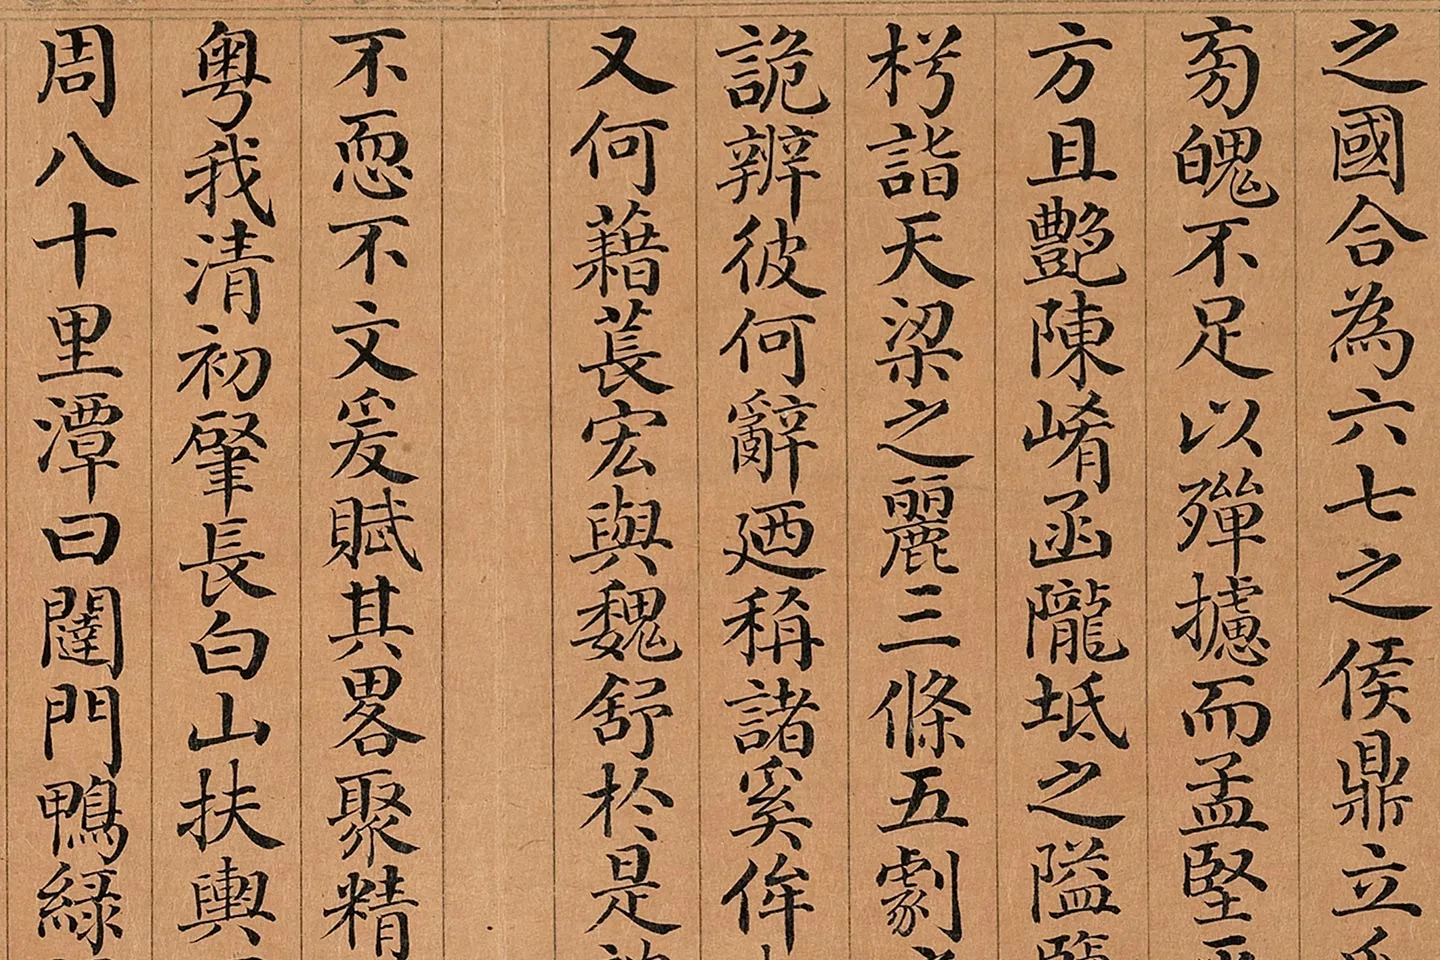 之國合為六七之侯鼎立
旁魄不足以殫攄而孟堅平
方且艷陳崤函隴坻之隘
枍詣天梁之麗三條五劇
詭辨彼何辭廼稱諸奚侔
又何藉萇宏與魏舒於是
不恧不文爰賦其畧聚精
粵我清初肇長白山扶輿
周八十里潭曰闥門鴨綠